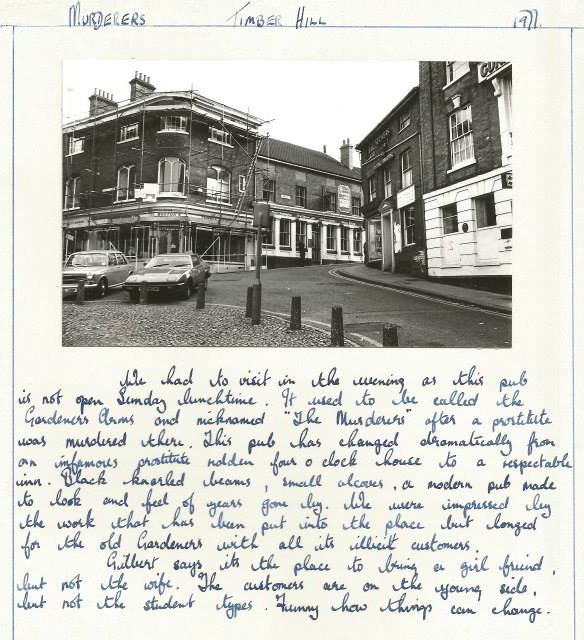 MURDERERS TIMBER HILL 1977.
We had to visit in the evening as this pub
is not open Sunday lunchtime. It used to be called the
Gardeners Arms and nicknamed "The Murderers" after a prostitute
was murdered there. This pub has changed dramatically from
an infamous prostitute ridden four o clock house to a respectable
inn. Black knarled beams, small alcoves, a modern pub made
to look and feel of years gone by. We were impressed by
the work that has been put into the place but longed
for the old Gardeners with all its illicit customers.
Gilbert says its the place to bring a girl friend,
but not the wife. The customers are on the young side,
but not the student types. Funny how things can change.